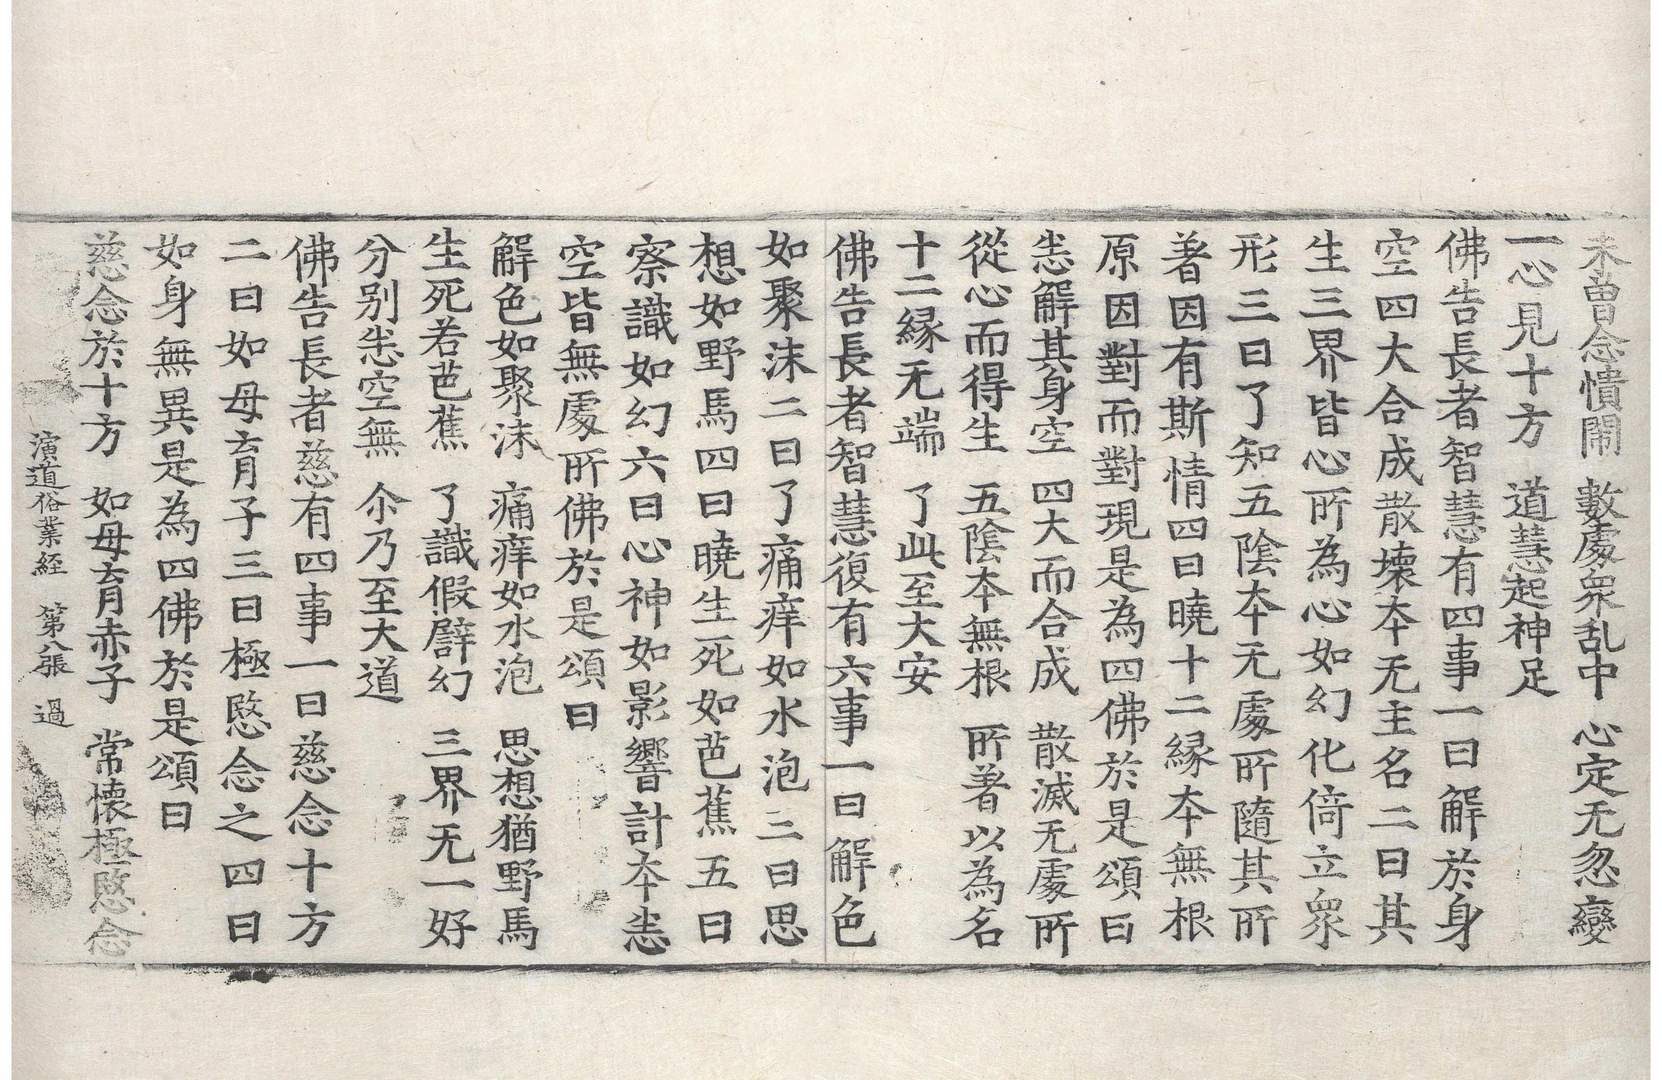 未曾念憒閙　數處衆乱中　心定无忽變
一心見十方　道慧起神足
佛告長者智慧有四事一曰解於身
空四大合成散壞夲无主名二曰其
生三界皆心所為心如幻化倚立衆
形三曰了知五陰夲无處所隨其所
著因有斯情四曰曉十二緣夲無根
原因對而對現是為四佛於是頌曰
悉解其身空　四大而合成　散滅无處所
從心而得生　五陰夲無根　所著以為名
十二緣无端　了此至大安
佛告長者智慧復有六事一曰解色
如聚沫二曰了痛痒如水泡三曰思
想如野馬四曰曉生死如芭蕉五曰
察識如幻六曰心神如影響計夲悉
空皆無處所佛於是頌曰
解色如聚沫　痛痒如水泡　思想猶野馬
生死若芭蕉　了識假譬幻　三界无一好
分别悉空無　尒乃至大道
佛告長者慈有四事一曰慈念十方
二曰如母育子三曰極愍念之四曰
如身無異是為四佛於是頌曰
慈念於十方　如母育赤子　常懷極愍念
演道俗業経　第八張　過